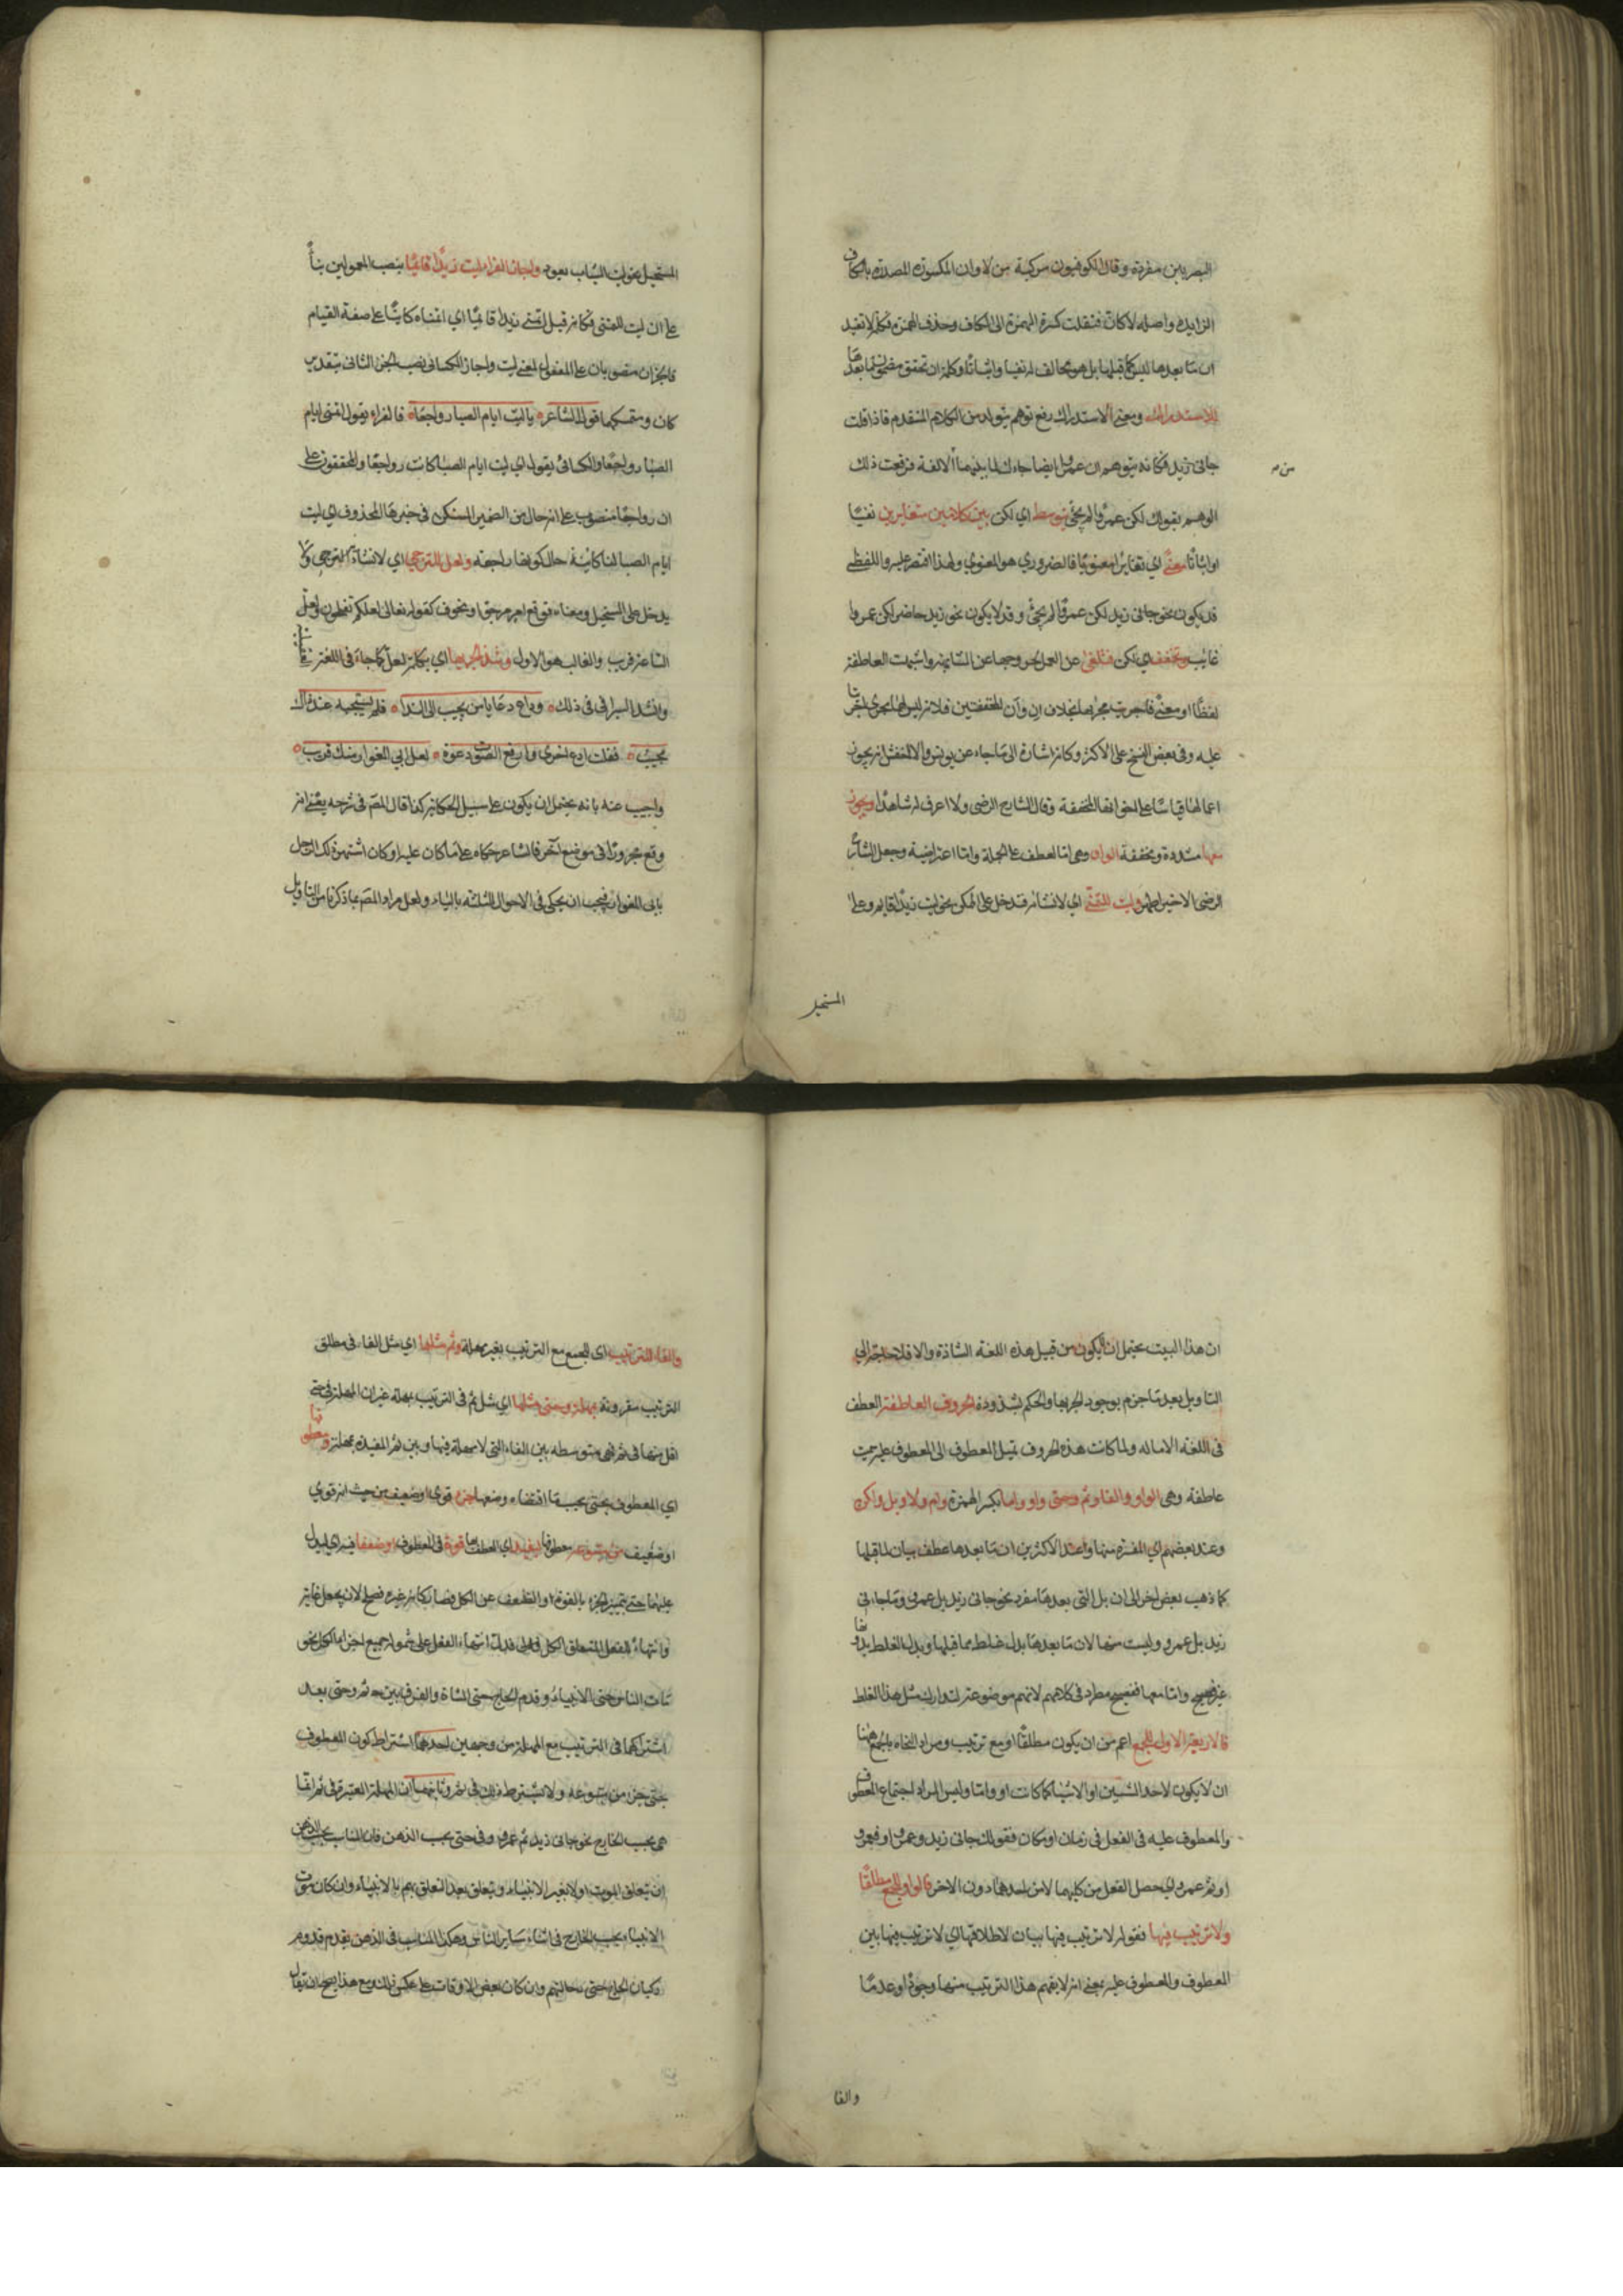 البصريين مفردة وقال الكوفيون مركبة من لا وان المكسورة المصدرة بالكاف
الزايدة واصله لاكان فنقلت كسرة الهمزة الى الكاف وحذف الهمزة فكلمة لا تفيد
ان ما بعدها ليس كما قبلها بل هو مخالف له نفيا واثباتا وكلمة ان تحقق مضمون ما بعدها
للاستدراك ومعنى الاستدراك رفع توهم يتولد من الكلام المتقدم فاذا قلت
جاني زيد فكانه يتوهم ان عمروا ايضا جاءك لما بينهما الالفة فرفعت ذلك
من م
الوهم بقولك لكن عمروا لم يجئ يتوسط اي لكن بين كلامين متغايرين نفيا
واثباتا معنى اي تغايرا معنويا فالضروري هو المعنوي ولهذا اقتصر عليه واللفظي
قد يكون نحو جاني زيد لكن عمروا لم يجئ وقد لا يكون نحو زيد حاضر لكن عمروا
غايب وتخفف اي لكن فتلغى عن العمل لخروجها عن المشابهة واشبهت العاطفة
لفظا ومعنى فاجريت مجراها بخلاف ان وأن المخففتين فلانه ليس لهما ما يجرى مجراه
عليه وفي بعض النسخ على الاكثر وكانه اشارة الى ما جاء عن يونس والاخفش انه يجوز
اعمالها قياسا على اخواتها المخففة وقال الشارح الرضى ولا اعرف له شاهدا ويجوز
معها مشددة ومخففة الواو وهي اما لعطف الجملة واما اعتراضية وجعل الشارح
الرضى الاخير اظهر وليت للتمنى اي لانشائه فتدخل على الممكن نحو ليت زيدا قايم وعلى
المستحيل
المستحيل نحو ليت الشباب يعود واجاز الفراء ليت زيدا قائما بنصب المعمولين بناء
على ان ليت للتمنى فكانه قيل اتمنى زيدا قائما اي اتمناه كاينا على صفة القيام
فالجزان منصوبان على المفعولية لمعنى ليت واجاز الكسائى نصب الجزء الثانى بتقدير
كان ومتمسكهما قول الشاعر يا ليت ايام الصبا رواجعا فالفراء يقول اتمنى ايام
الصبا رواجعا والكسائى يقول اي ليت ايام الصبا كانت رواجعا والمحققون على
ان رواجعا منصوب على انه حال من الضمير المستكن فى خبرها المحذوف اي ليت
ايام الصبا لنا كائنة حال كونها راجعة ولعل للترجى اي لانشاء الترجى ولا
يدخل على المستحيل ومعناه توقع امر مرجو او مخوف كقوله تعالى لعلكم تفلحون ولعل
الساعة قريب والغالب هو الاول وشذ الجر بها اي بكلمة لعل كما جاء فى اللغة
وانشد السيرافى فى ذلك وداع دعا يا من يجيب الى الندا فلم يستجبه عند ذاك
مجيب فقلت ادع اخرى وارفع الصوت دعوة لعل ابي المغوار منك قريب
واجيب عنه بانه يحتمل ان يكون على سبيل الحكاية كذا قال المص فى شرحه يعنى انه
وقع مجرورا فى موضع آخر فالشاعر حكاه على ما كان عليه او كان اشتهر ذلك الرجل
بابى المغوار فيجب ان يحكى فى الاحوال الثلثة بالياء ولعل مراد المص بما ذكرنا من التاويل
ان هذا البيت يحتمل ان لا يكون من قبيل هذه اللغة الشاذة والا فلا حاجة الى
التاويل بعد ما جزم بوجود الجر بها والحكم بشذوذه الحروف العاطفة العطف
فى اللغة الامالة ولما كانت هذه الحروف تميل المعطوف الى المعطوف عليه سميت
عاطفة وهى الواو والفا وثم وحتى واو واما بكسر الهمزة وام ولا وبل ولكن
وعند بعضهم اي المفسرة منها وعند الاكثرين ان ما بعدها عطف بيان لما قبلها
كما ذهب بعض اخر الى ان بل التى بعدها مفرد نحو جانى زيد بل عمرو وما جاءنى
زيد بل عمرو وليست منها لان ما بعدها بدل غلط مما قبلها وبدل الغلط بدونها
غير فصيح واما معها ففصيح مطرد فى كلامهم لانهم موضوعة لتدارك مثل هذا الغلط
فالاربعة الاول للجمع اعم من ان يكون مطلقا او مع ترتيب ومراد النحاه بالجمع ههنا
ان لا يكون لاحد الشيئين او الاشياء كما كانت او واما وليس المراد اجتماع المعطوف
والمعطوف عليه فى الفعل فى زمان او مكان فقولك جانى زيد وعمرو او فعمرو
او ثم عمرو اي حصل الفعل من كليهما لا من احدهما دون الاخر فالواو للجمع مطلقا
ولا ترتيب فيها فقوله لا ترتيب فيها بيان لاطلاقها اي لا ترتيب فيها بين
المعطوف والمعطوف عليه بمعنى انه لا يفهم هذا الترتيب منها وجودا وعدما
والفا
والفاء للترتيب اى للجمع مع الترتيب بغير مهلة وثم مثلها اي مثل الفاء فى مطلق
الترتيب مقرونة بمهلة وحتى مثلها اي مثل ثم فى الترتيب بمهلة غير ان المهلة فى حتى
اقل منها فى ثم فهى متوسطه بين الفاء التى لا مهلة فيها وبين ثم المفيدة بمهلة ومعطوفها
اي المعطوف بحتى بحسب ما اقتضاه وضعها جزء قوى او ضعيف من حيث انه قوي
او ضعيف من متبوعه معطوفا ليفيد اي العطف بها قوة فى المعطوف او ضعفا فيه اي ليدل
عليهما حتى يتميز الجزء بالقوة او الضعف عن الكل فصار كانه غيره فصلح لان يجعل غاية
وانتهاء للفعل المتعلق بالكل فدل انتهاء الفعل على شموله جميع اجزاء الكل نحو
مات الناس حتى الانبياء وقدم الحاج حتى المشاة والفرق بين ثم وحتى بعد
اشتراكهما فى الترتيب مع المهلة من وجهين احدهما اشتراط كون المعطوف
بحتى جزء من متبوعه ولا يشترط ذلك فى ثم وثانيهما ان المهلة المعتبرة فى ثم انما
هى بحسب الخارج نحو جانى زيد ثم عمرو وفى حتى بحسب الذهن فان المناسب بحسب الذهن
ان يتعلق الموت اولا بغير الانبياء ويتعلق بعد التعلق بهم بالانبياء وان كان موت
الانبياء بحسب الخارج فى اثناء ساير الناس وهكذا المناسب فى الذهن تقدم قدوم
ركبان الحاج حتى رجالتهم وان كان بعض الاوقات على عكس ذلك ومع هذا يصح ان يقال